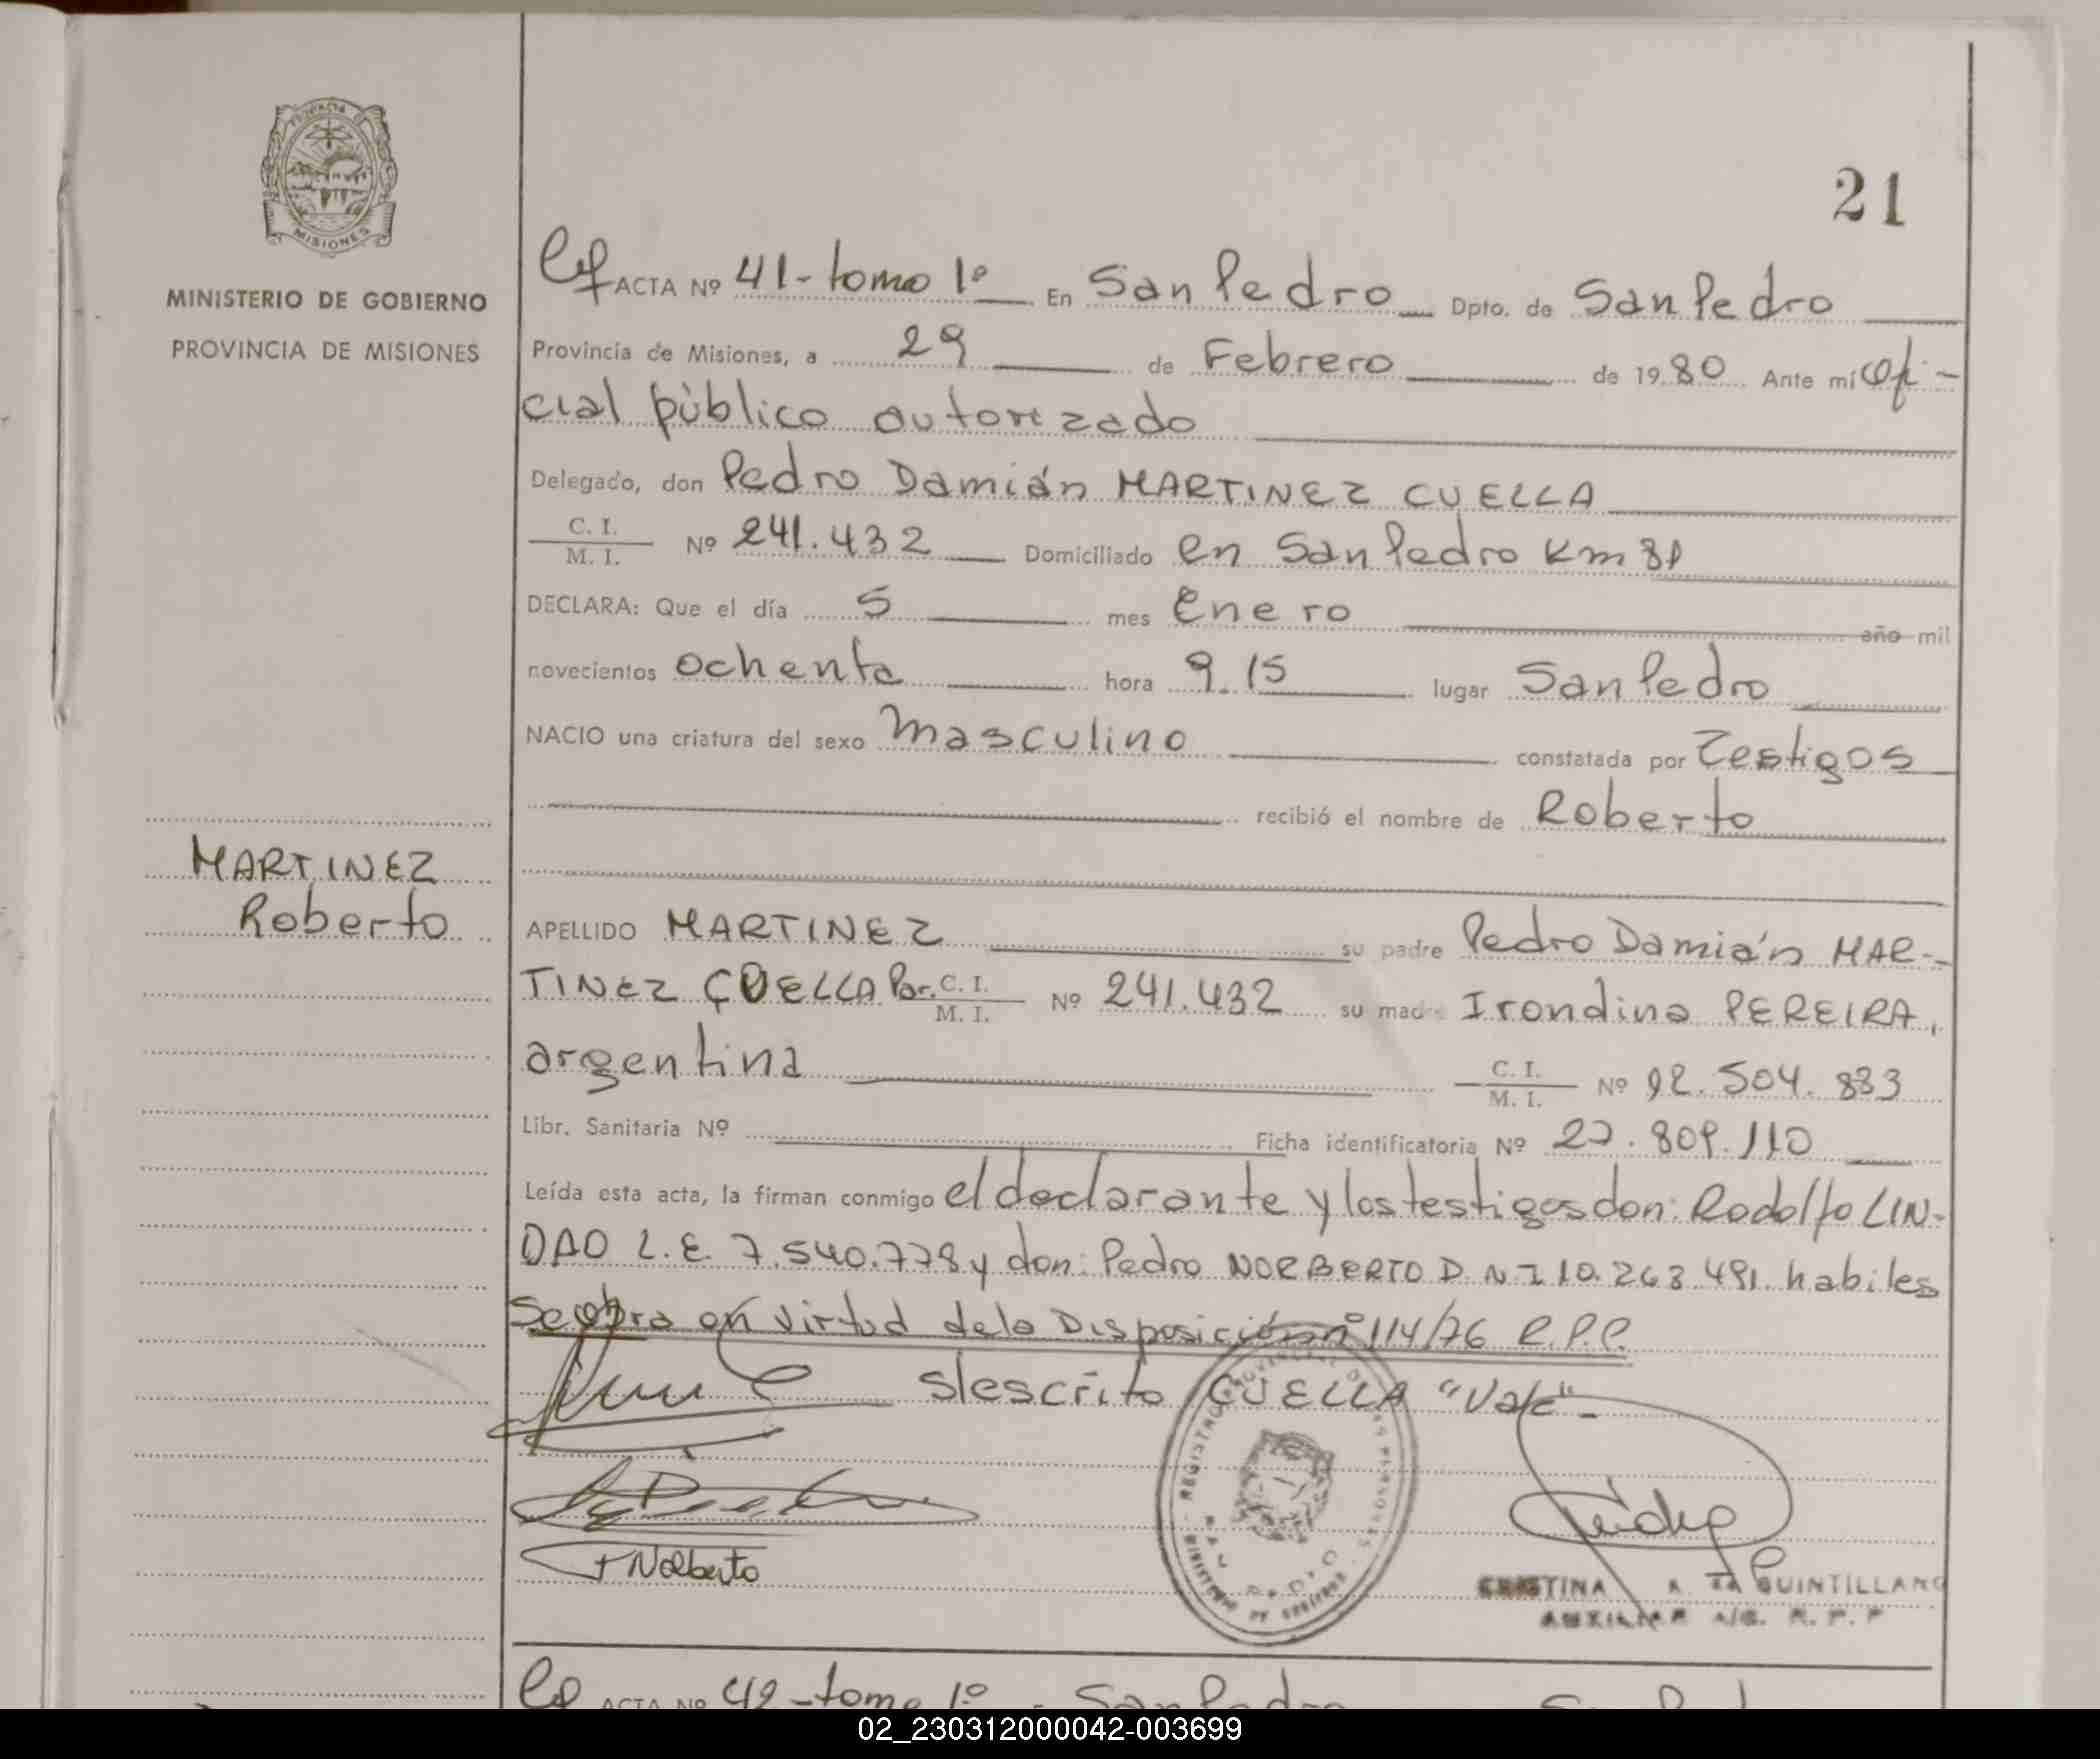 21
PROVINCIA
MISIONES
MINISTERIO DE GOBIERNO
PROVINCIA DE MISIONES
ACTA Nº 41-tomo 1º En San Pedro Dpto. de San Pedro
Provincia de Misiones, a 29 de Febrero de 1980 Ante mí ofi-
cial público autorizado
Delegado, don Pedro Damián MARTINEZ CUELLA
C. I.
M. I. Nº 241.432 Domiciliado en San Pedro Km 81
DECLARA: Que el día 5 mes Enero año mil
novecientos ochenta hora 9.15 lugar San Pedro
NACIO una criatura del sexo masculino constatada por Testigos
recibió el nombre de Roberto
MARTINEZ
Roberto
APELLIDO MARTINEZ su padre Pedro Damián MAR-
TINEZ CUELLA Par. C. I.
M. I. Nº 241.432 su madre Irondina PEREIRA,
argentina C. I.
M. I. Nº 92.504.883
Libr. Sanitaria Nº Ficha identificatoria Nº 27.809.110
Leída esta acta, la firman conmigo el declarante y los testigos don: Rodolfo LIN-
DAO L.E. 7.540.778 y don: Pedro NORBERTO D N I 10.263.491. habiles
Se obra en virtud de la Disposición nº 114/76 R.P.P.
s/escrito CUELLA "Vale"-
Nolberto
CRISTINA QUINTILLANO
AUXILIAR A/G. R. P. P
ACTA Nº 42-tomo 1º San Pedro
02_230312000042-003699